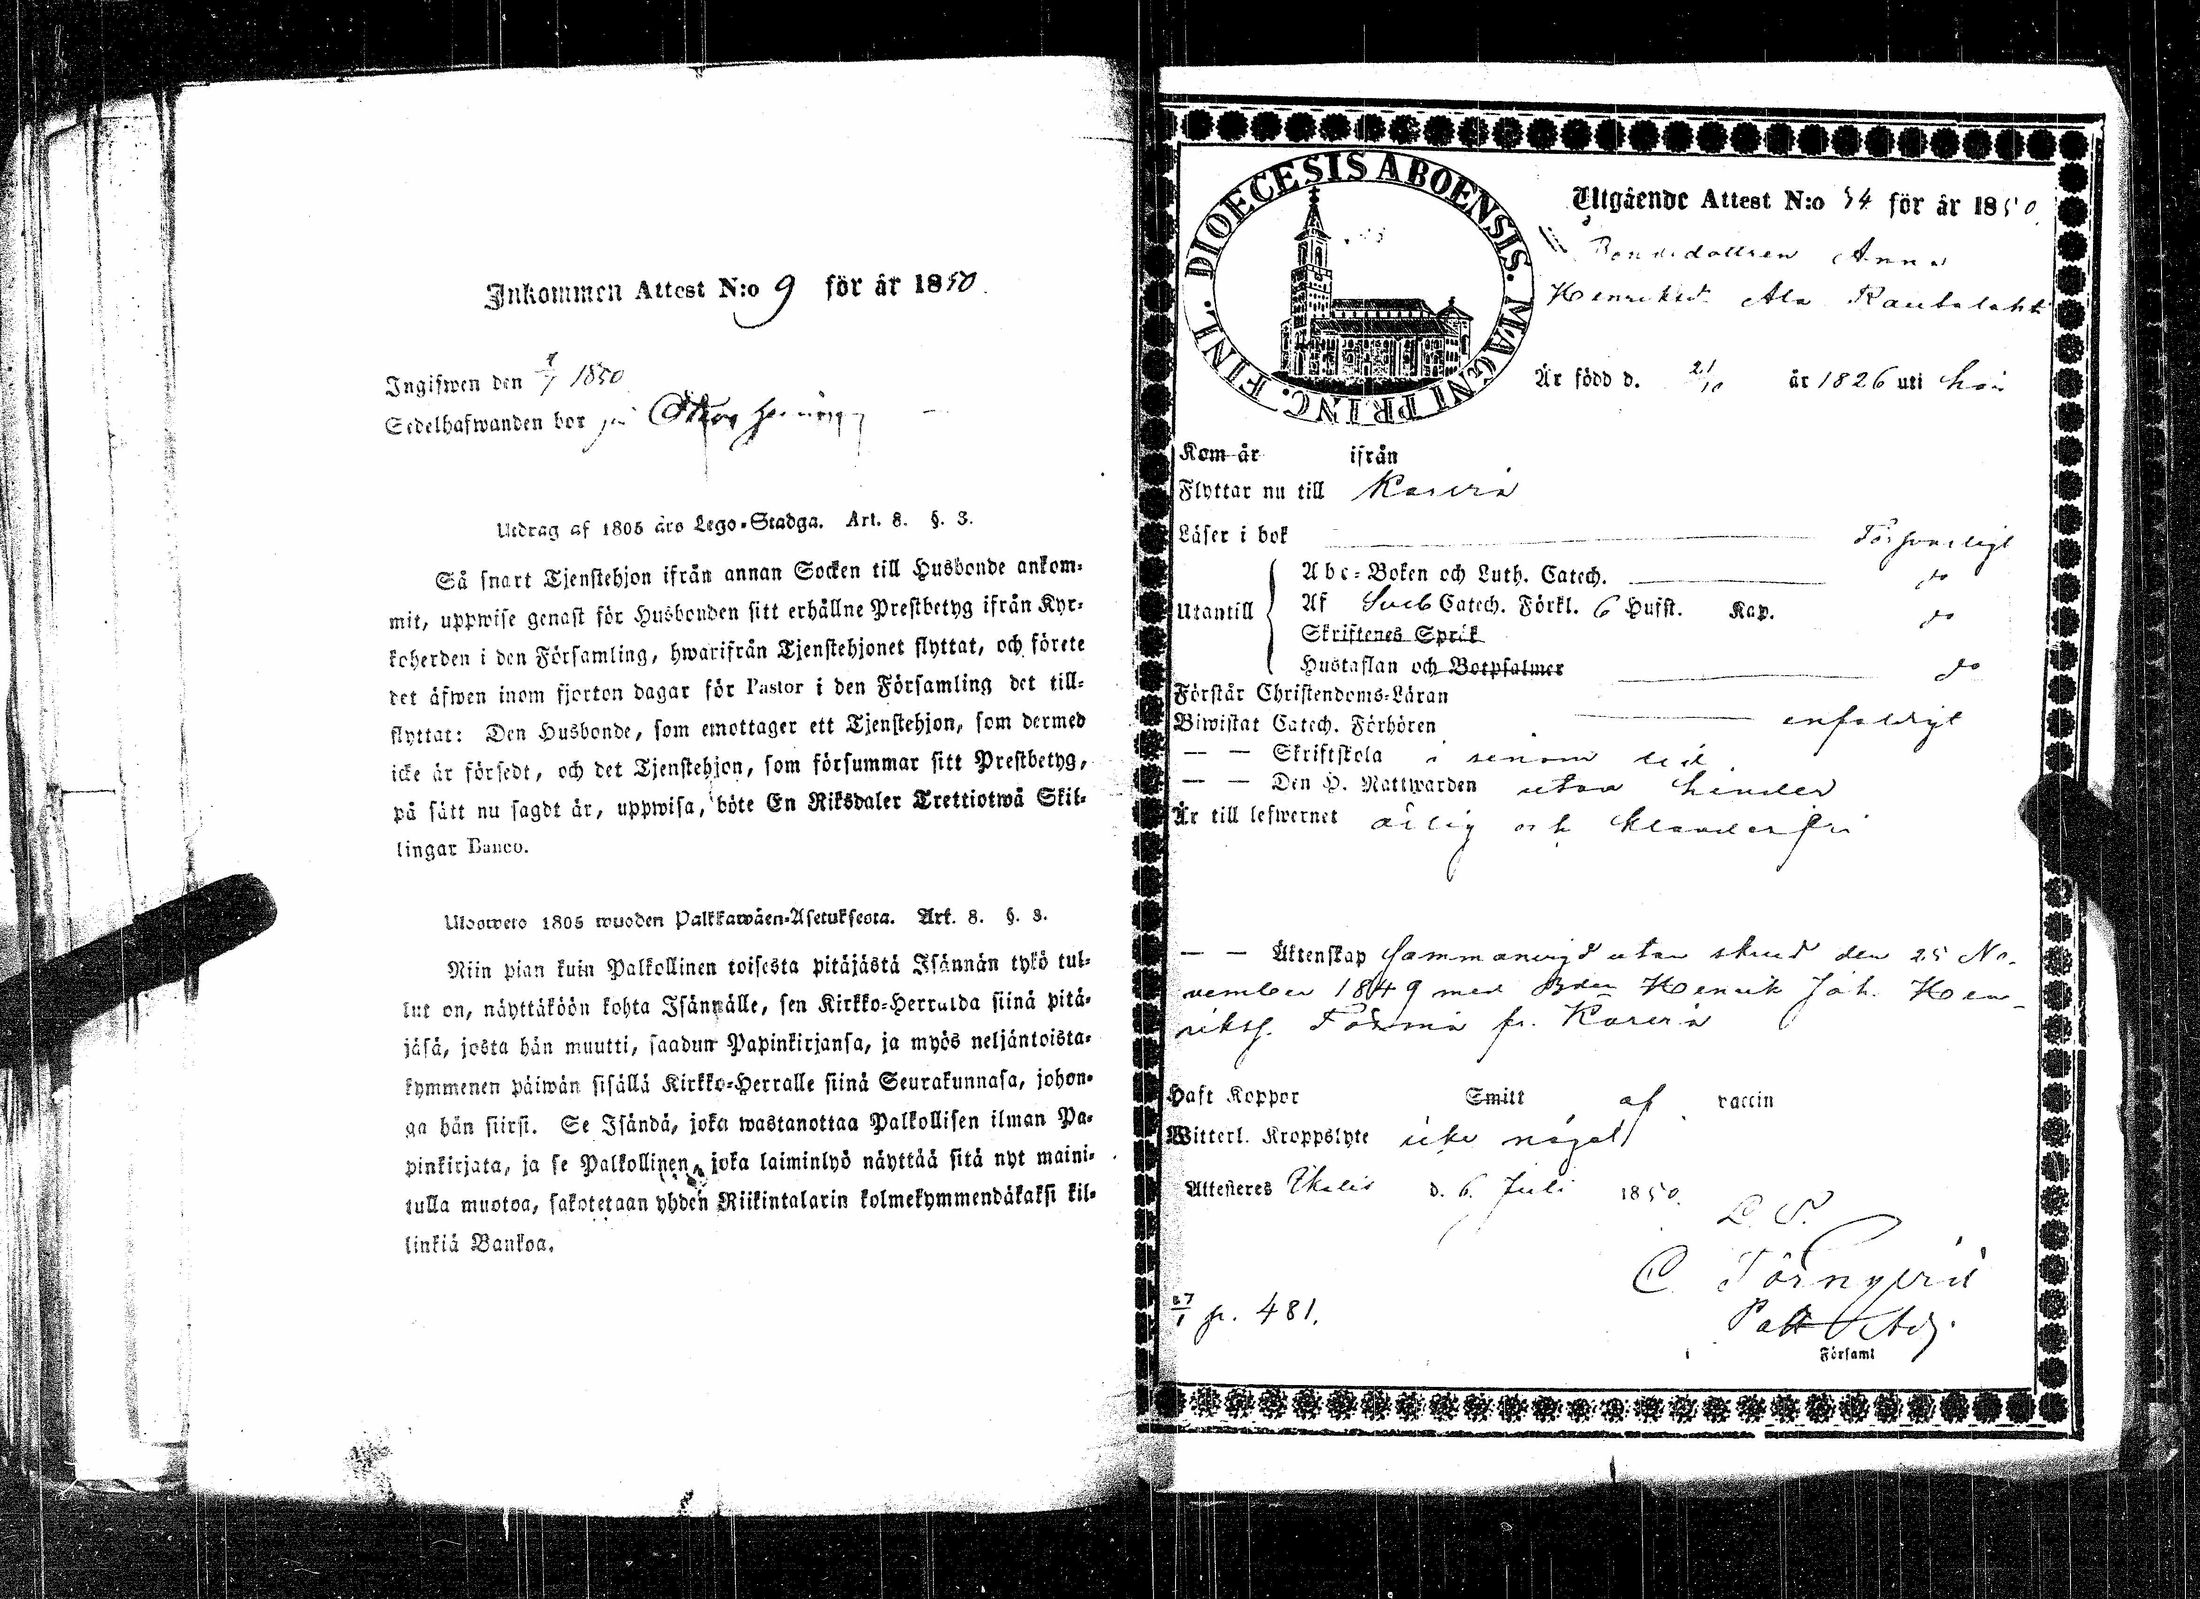 Inkommen Attest N:o 9 för år 1850.
Ingifwen den 7/7 1850
Sedelhafwanden bor på
Utdrag af 1805 års Lego-Stadga. Art. 8. §. 3.
Så snart Tjenstehjon ifrån annan Socken till Husbonde ankom-
mit, uppwise genast för Husbonden sitt erhållne Prestbetyg ifrån Kyr-
koherden i den Församling, hwarifrån Tjenstehjonet flyttat, och förete
det äfwen inom fjorton dagar för Pastor i den Församling det till-
flyttat: Den Husbonde, som emottager ett Tjenstehjon, som dermed
icke är försedt, och det Tjenstehjon, som försummar sitt Prestbetyg,
på sätt nu sagdt är, uppwisa, böte En Riksdaler Trettiotwå Skil-
lingar Banco.
Ulosweto 1805 wuoden Palkkawäen-Asetuksesta. Art. 8. §. 3.
Niin pian kuin Palkollinen toisesta pitäjästä Isännän tykö tul-
lut on, näyttäköön kohta Isännälle, sen Kirkko-Herralda siinä pitä-
jäsä, josta hän muutti, saadun Papinkirjansa, ja myös neljäntoista-
kymmenen päiwän sisällä Kirkko-Herralle siinä Seurakunnasa, johon-
ga hän siirsi. Se Isändä, joka wastanottaa Palkollisen ilman Pa-
pinkirjata, ja se Palkollinen, joka laiminlyö näyttää sitä nyt maini-
tulla muotoa, sakotetaan yhden Riikintalarin kolmekymmendäkaksi kil-
linkiä Bankoa.
DIOECESIS ABOENSIS. MAGNI PRINC. FINL.
Utgående Attest N:o 54 för år 1850.
Bondedottren Anna
Henriksd. Ala Rautalahti
Är född d. 21/10 år 1826 uti här
Kom år ifrån
Flyttar nu till Karvia
Läser i bok Försvarligt
Abc-Boken och Luth. Catech. do
Utantill
Af Sveb Catech. Förkl. 6 Hufst. Kap. do
Skriftenes Språk
Hustaflan och Botpsalmer do
Förstår Christendoms-Läran
Biwistat Catech. Förhören enfaldigt
— — Skriftskola i senom tid
— — Den H. Nattwarden utan hinder
Är till lefwernet ärlig och klanderfri
— — Äktenskap Sammanvigd utan skrud den 25 No-
vember 1849 med Bdn Henrik Joh. Hen-
riksf. fr. Karvia
Haft Koppor Smitt af vaccin
Witterl. Kroppslyte icke något
Attesteras Ikalis d. 6. Juli 1850.
L. S.
C Törnqvist
Past Adj.
Församl
p. 481.